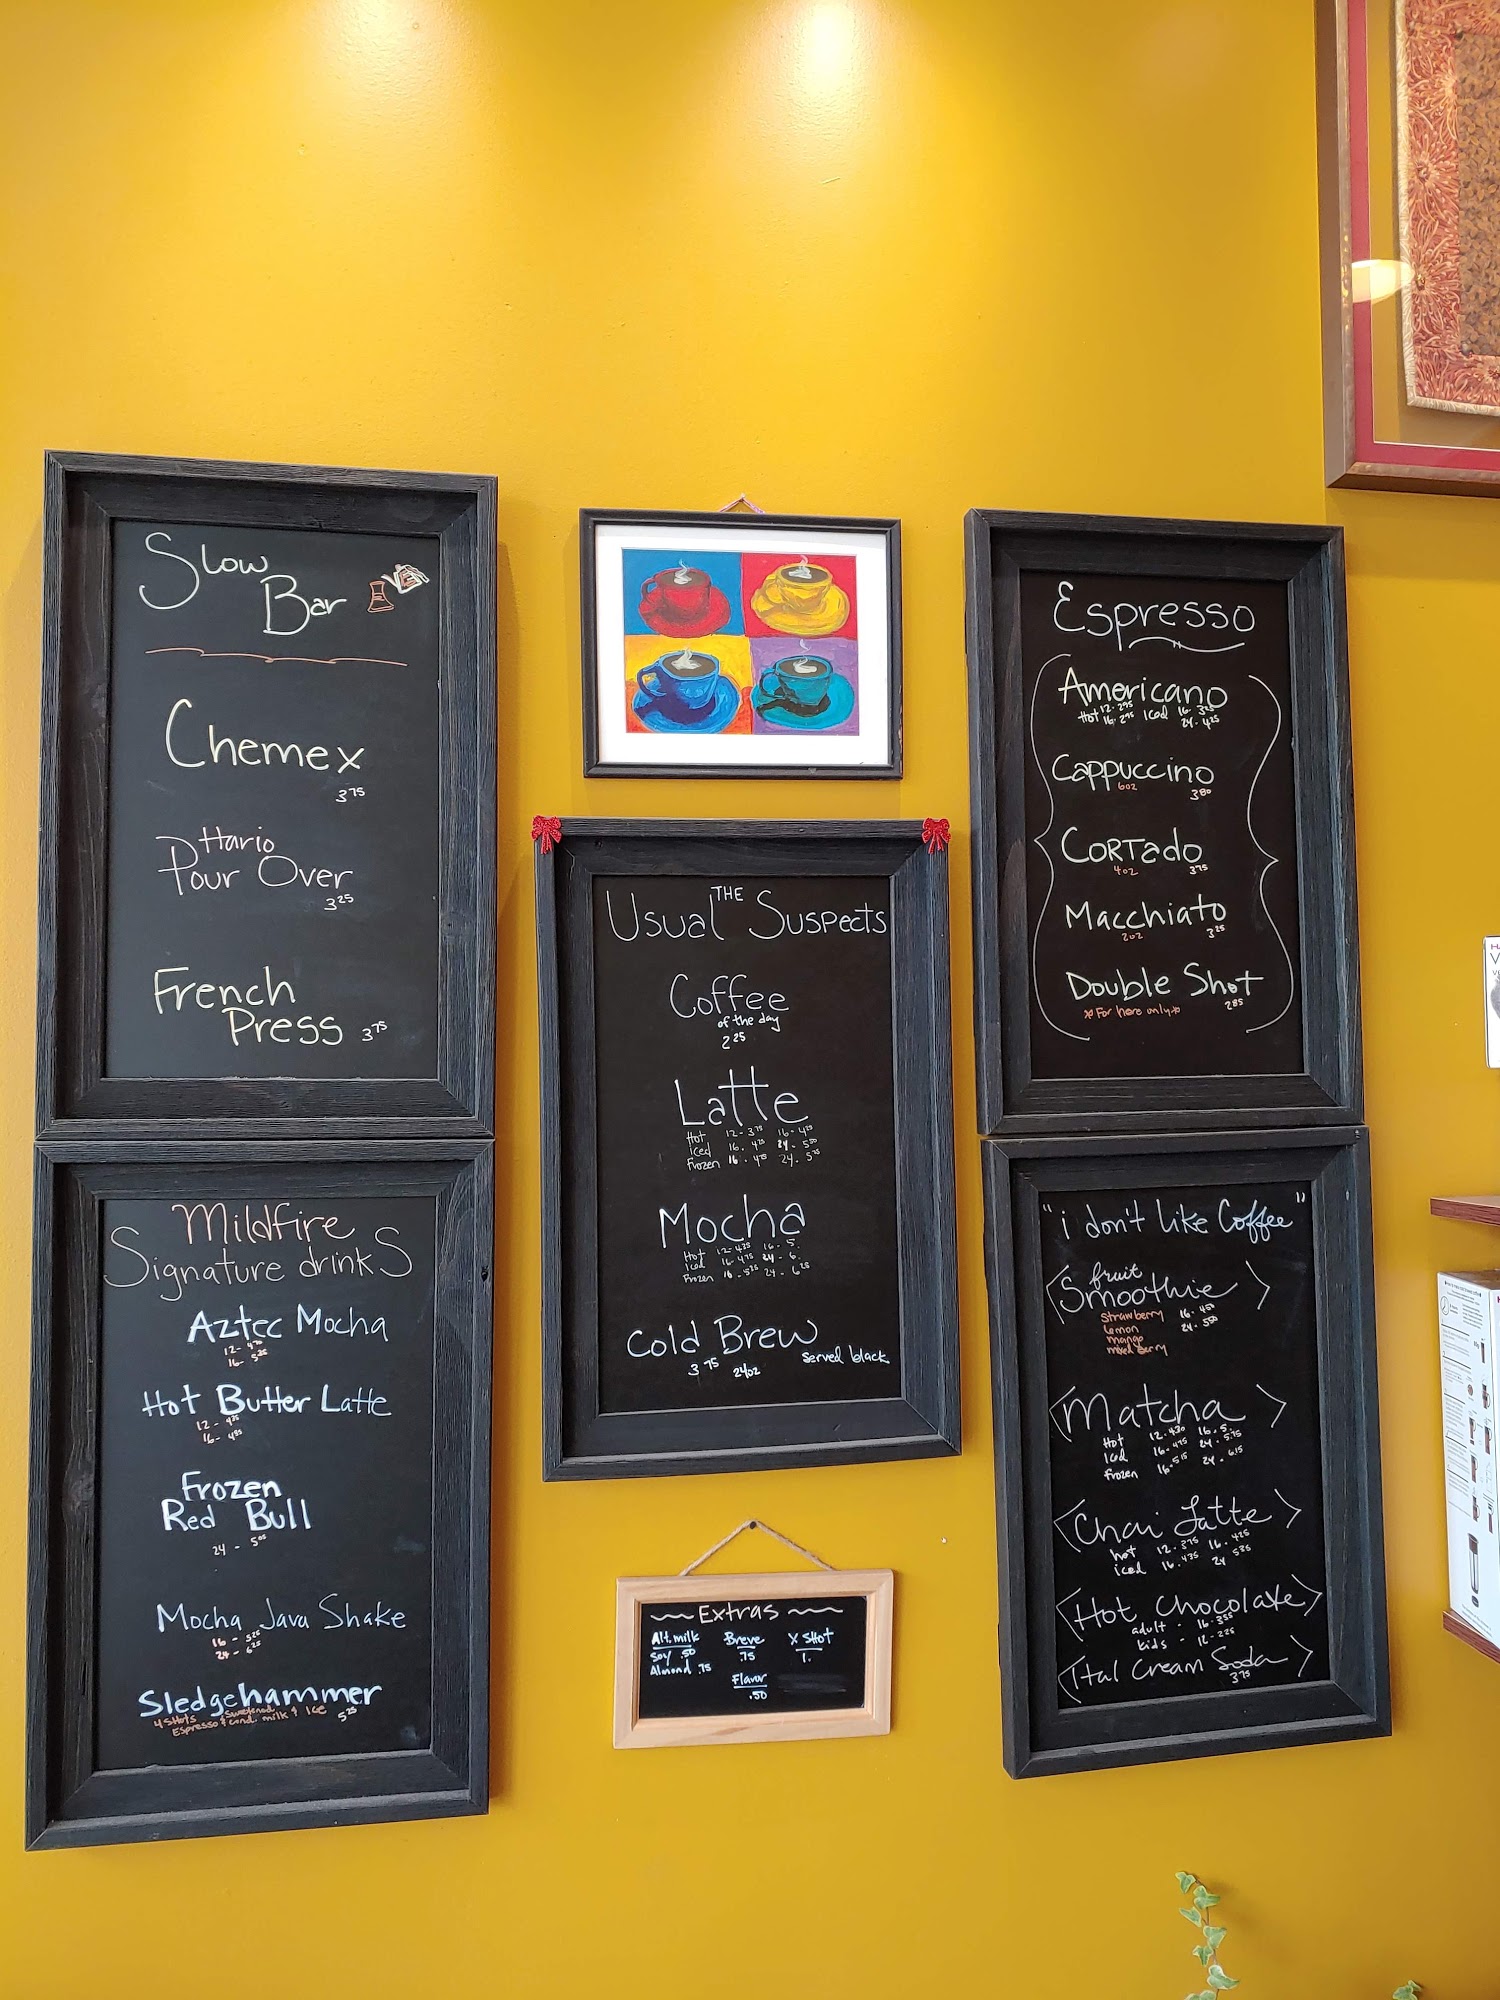 Slow
Bar
Chemex
3 75
Hario
Pour Over
3 25
French
Press 3 75
Mildfire
Signature drinks
Aztec Mocha
12 - 4.75
16 - 5.25
Hot Butter Latte
12 - 4.35
16 - 4.85
Frozen
Red Bull
24 - 5
Mocha Java Shake
16 - 5.25
24 - 6.25
Sledgehammer
4 shots sweetened
Espresso & cond. milk & ICE 5 25
THE
Usual Suspects
Coffee
of the day
2 25
Latte
Hot 12 - 3.75 16 - 4.25
Iced 16 - 4.25 24 - 5.50
Frozen 16 - 4.75 24 - 5.75
Mocha
Hot 12 - 4.25 16 - 5.
Iced 16 - 4.75 24 - 6.
Frozen 16 - 5.25 24 - 6.25
Cold Brew
served black
3 75 24oz
Extras
Alt. milk
Soy .50
Almond .75
Breve
.75
Flavor
.50
X SHOT
1.
Espresso
Americano
Hot 12 - 2.95 Iced 16 - 3.25
16 - 2.95 24 - 4.25
Cappuccino
6oz 3 80
Cortado
4oz 3 75
Macchiato
2oz 3 25
Double Shot
*For here only* 2 85
"i don't like Coffee"
fruit
Smoothie
Strawberry 16 - 4.50
Lemon 24 - 5.50
mango
mixed berry
Matcha
Hot 12 - 4.30 16 - 5.
Iced 16 - 4.75 24 - 5.75
Frozen 16 - 5.15 24 - 6.15
Chai Latte
hot 12 - 3.75 16 - 4.25
iced 16 - 4.35 24 5.35
Hot Chocolate
adult - 16 - 3.55
kids - 12 - 2.25
Ital Cream Soda
3 75